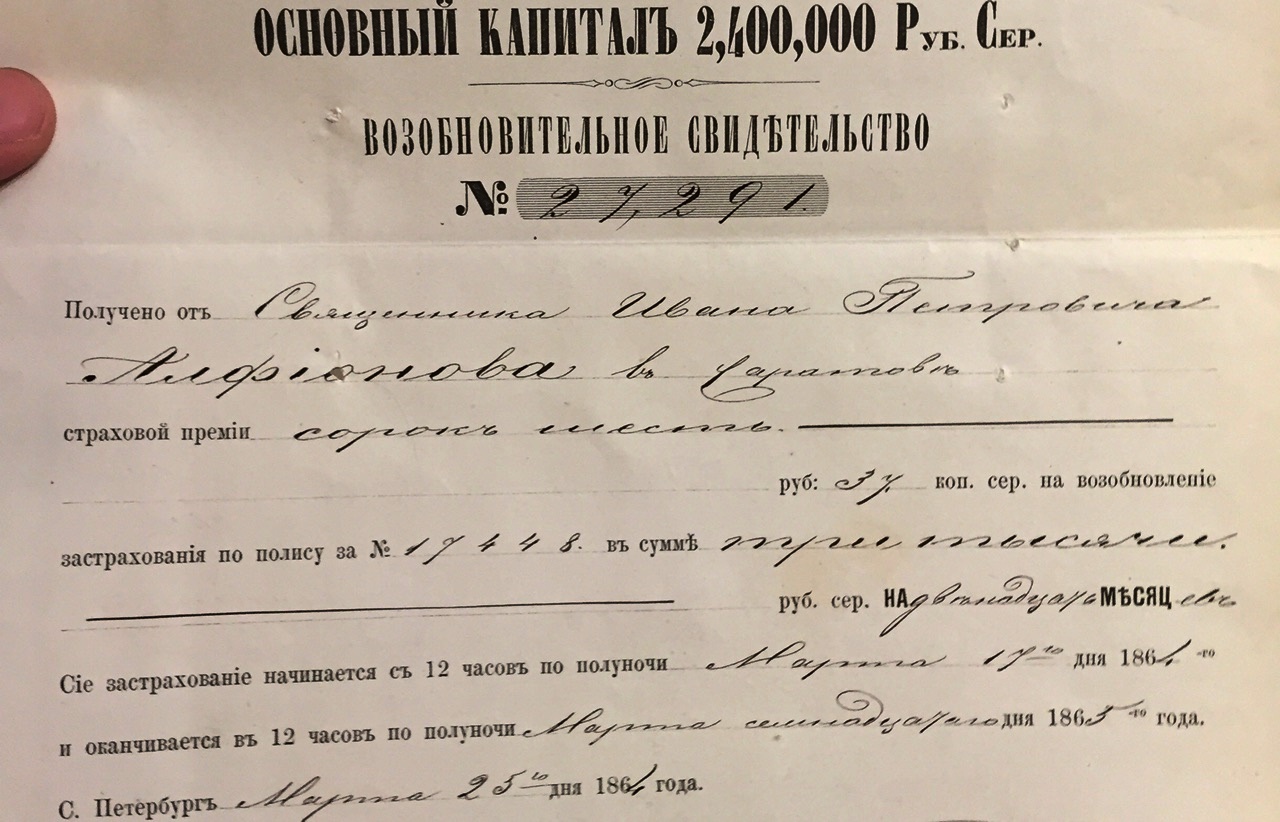 ОСНОВНЫЙ КАПИТАЛЪ 2,400,000 Руб. Сер.
ВОЗОБНОВИТЕЛЬНОЕ СВИДѢТЕЛЬСТВО
№ 27,291.
Получено отъ Священника Ивана Петровича
Алфіонова въ Саратовѣ
страховой преміи сорокъ шесть.
руб: 37 коп. сер. на возобновленіе
застрахованія по полису за № 17448. въ суммѣ три тысячи.
руб. сер. НА двѣнадцать МѢСЯЦ евъ
Сіе застрахованіе начинается съ 12 часовъ по полуночи Марта 17го дня 1864-го
и оканчивается въ 12 часовъ по полуночи Марта семнадцатаго дня 1865-го года.
С. Петербургъ Марта 25го дня 1864 года.